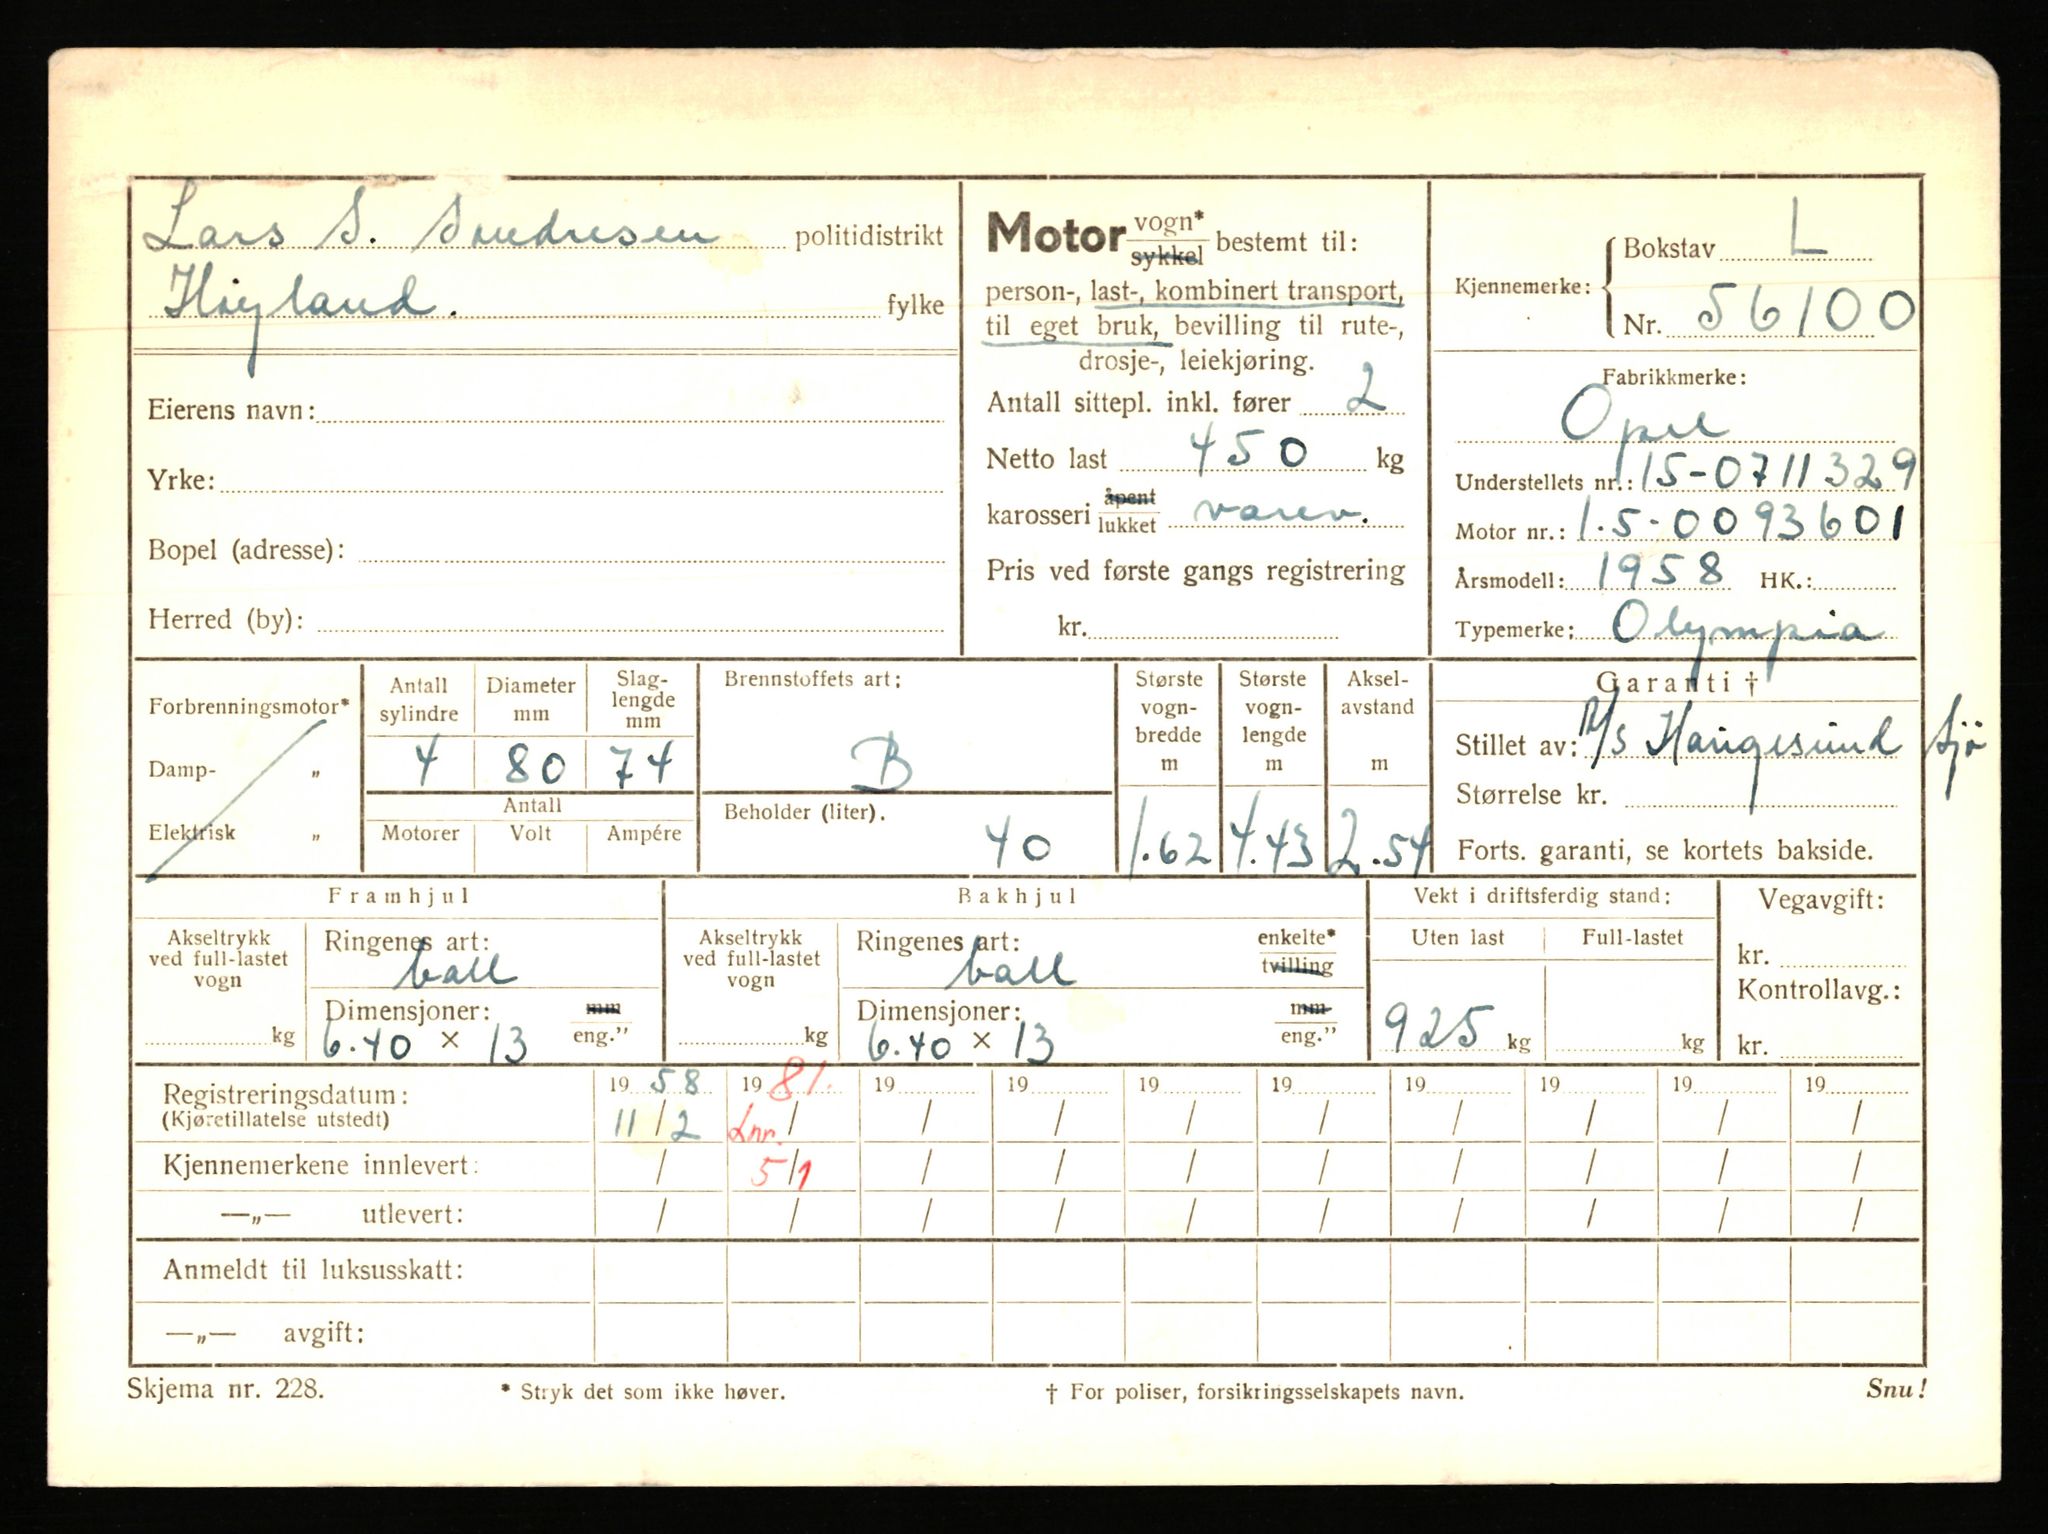 Lars S. Sondresen politidistrikt
Høyland. fylke
Eierens navn:
Yrke:
Bopel (adresse):
Herred (by):
Motor vogn* sykkel bestemt til:
person-, last-, kombinert transport,
til eget bruk, bevilling til rute-,
drosje-, leiekjøring.
Antall sittepl. inkl. fører 2
Netto last 450 kg
karosseri åpent lukket varev.
Pris ved første gangs registrering
kr.
Kjennemerke: Bokstav L
Nr. 56100
Fabrikkmerke:
Opel
Understellets nr.: 15-0711329
Motor nr.: 1.5-0093601
Årsmodell: 1958 HK.:
Typemerke: Olympia
Forbrenningsmotor*
Damp- „
Elektrisk „
Antall sylindre
4
Diameter mm
80
Slag-
lengde
mm
74
Antall
Motorer Volt Ampére
Brennstoffets art:
B
Beholder (liter).
40
Største
vogn-
bredde
m
1.62
Største
vogn-
lengde
m
4.43
Aksel-
avstand
m
2.54
Garanti †
Stillet av: A/S Haugesund Sjø
Størrelse kr.
Forts. garanti, se kortets bakside.
Framhjul
Akseltrykk
ved full-lastet
vogn
kg
Ringenes art:
ball
Dimensjoner: mm
6.40 × 13 eng.”
Bakhjul
Akseltrykk
ved full-lastet
vogn
kg
Ringenes art: enkelte*
ball tvilling
Dimensjoner: mm
6.40 × 13 eng.”
Vekt i driftsferdig stand:
Uten last Full-lastet
925 kg kg
Vegavgift:
kr.
Kontrollavg.:
kr.
Registreringsdatum: 19 58 19 81. 19 19 19 19 19 19 19 19
(Kjøretillatelse utstedt) 11/2 Lnr. / / / / / / / / /
Kjennemerkene innlevert: / 5/1 / / / / / / / /
—„— utlevert: / / / / / / / / / /
Anmeldt til luksusskatt:
—„— avgift:
Skjema nr. 228. * Stryk det som ikke høver. † For poliser, forsikringsselskapets navn. Snu!